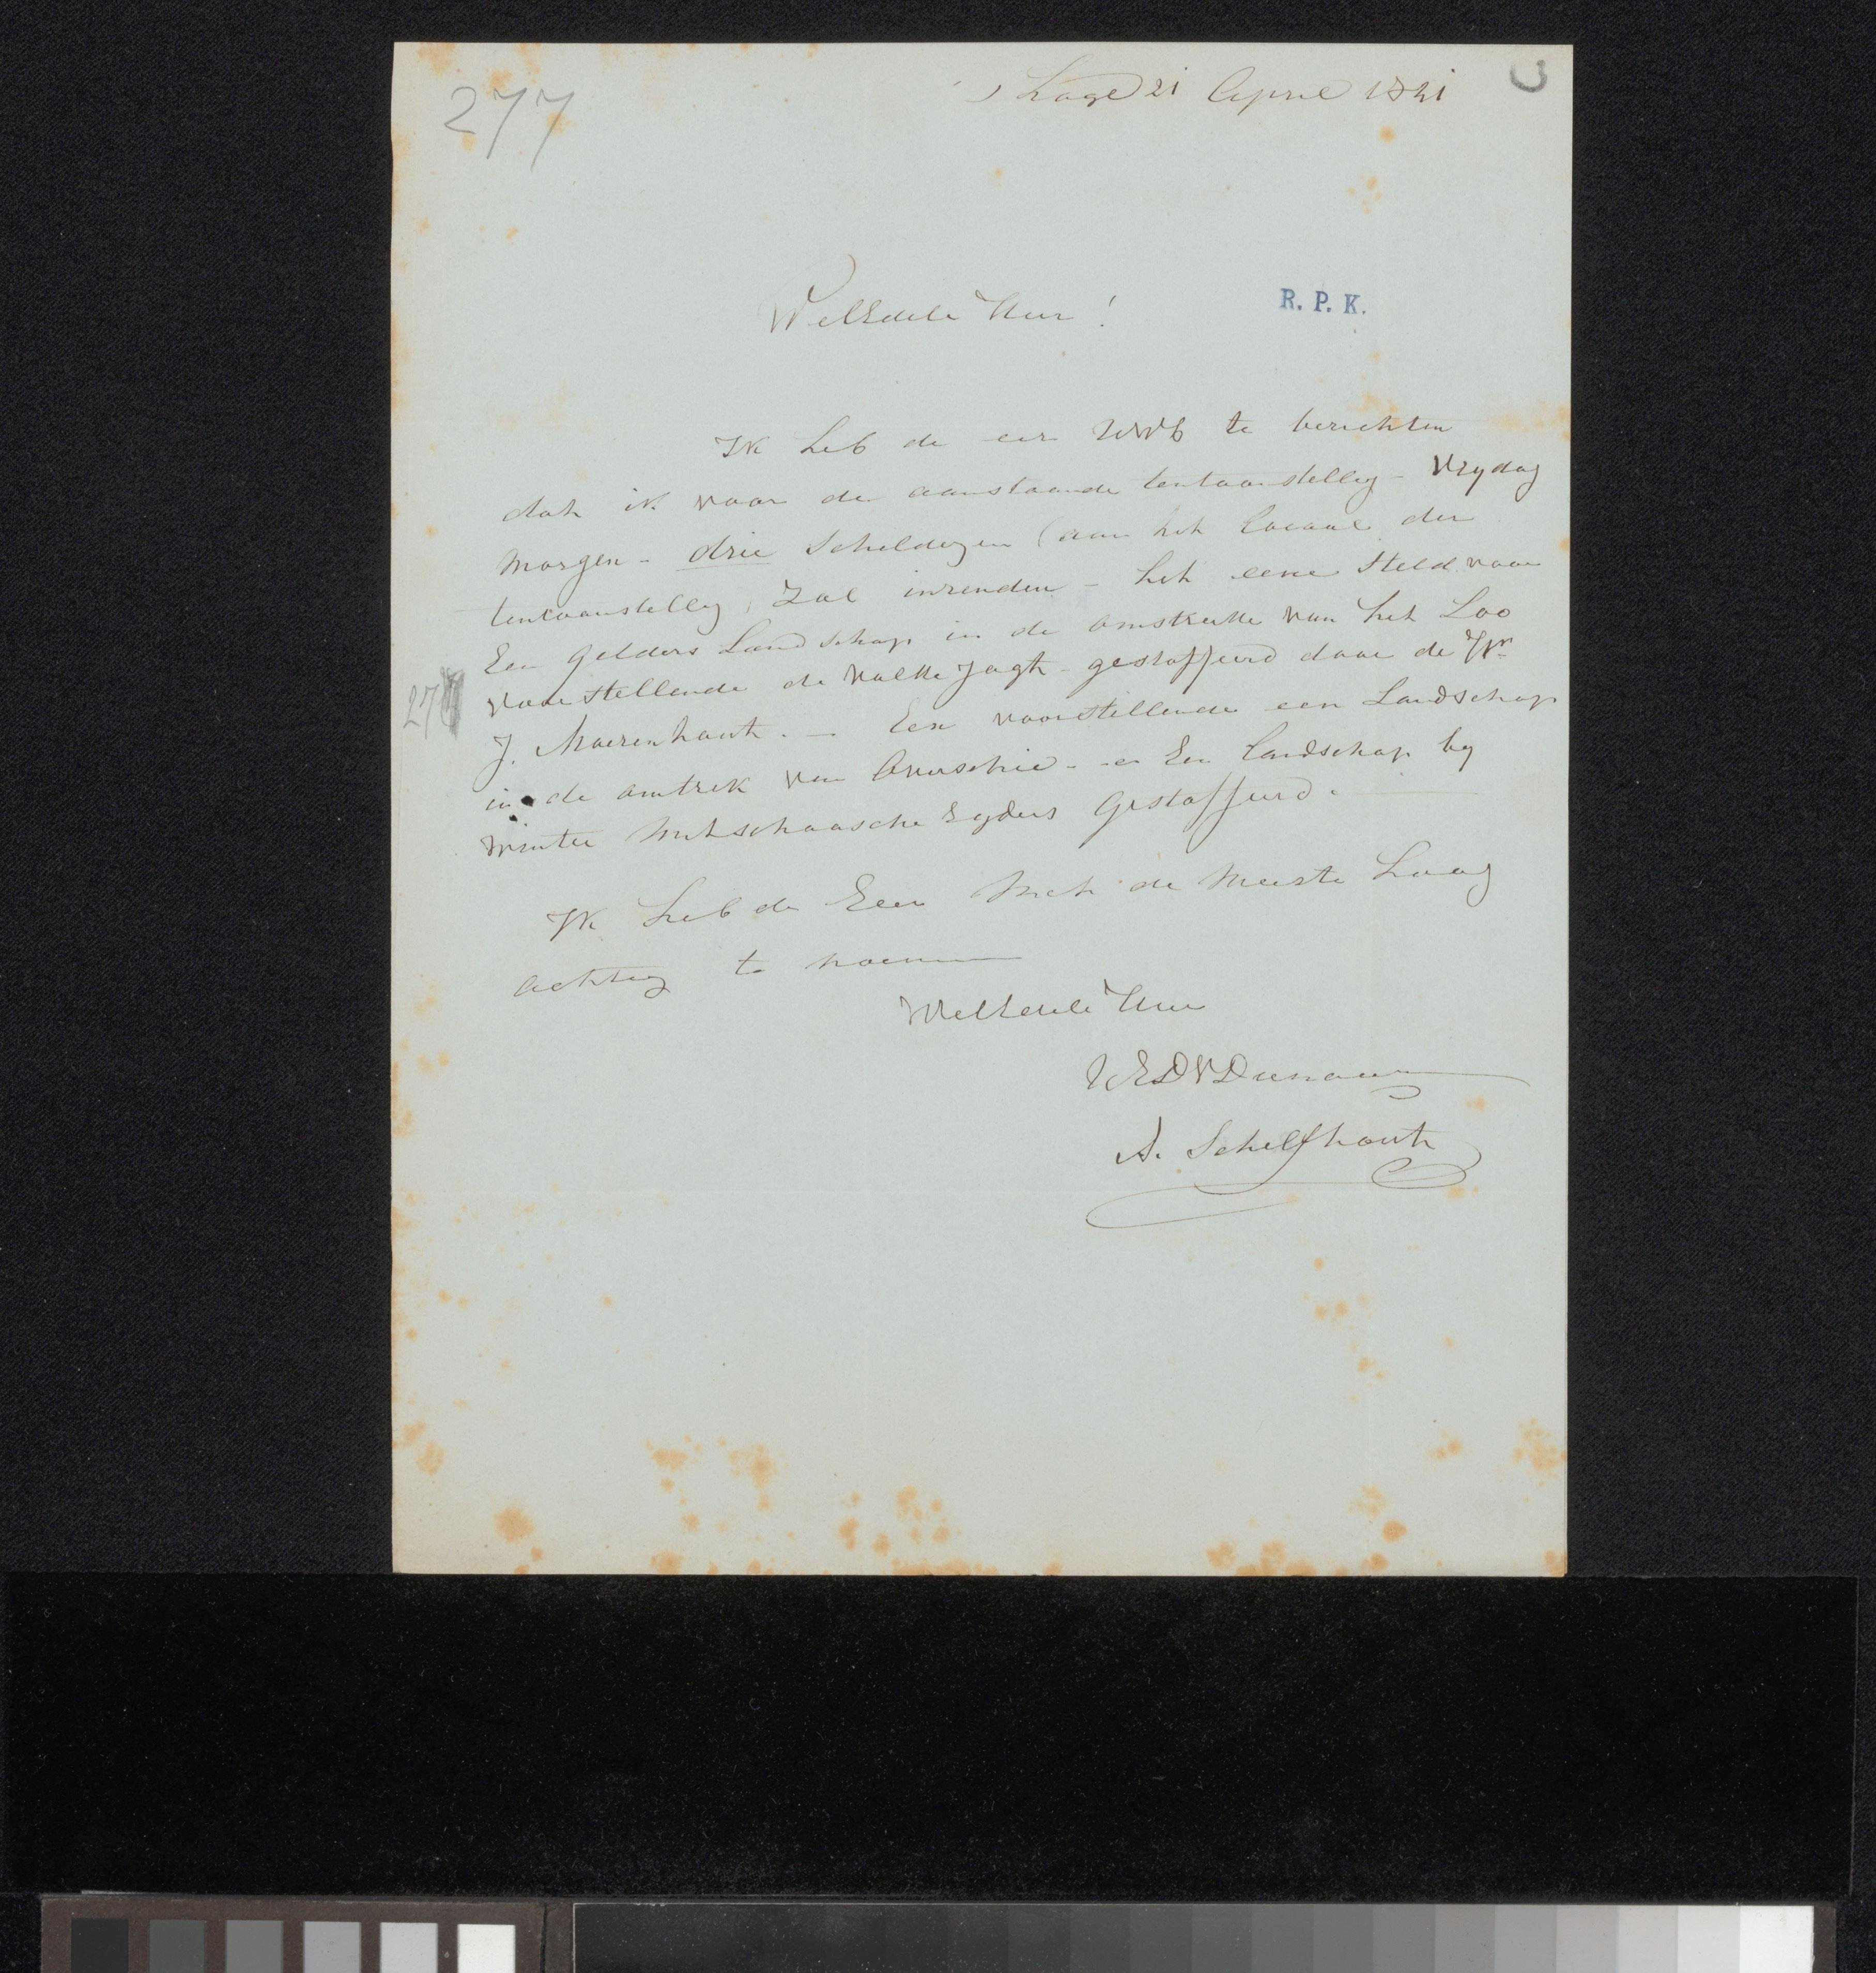 277
's Hage 21 April 1841
WelEdele Heer!
R. P. K.
Ik heb de eer UWE te berichten
dat ik voor de aanstaande tentoonstelling - Vrydag
morgen - drie schilderyen (aan het locaal der
tentoonstelling) zal inzenden - het eene steld voor
Een Gelders Landschap in de omstreke van het Loo
voorstellende de Valke Jagt - gestoffeerd door de Hr
27
J. Moerenhout. - Een voorstellende een Landschap
in de omtrek van Overschie - en Een landschap by
winter met schaatsche Ryders Gestoffeerd.
Ik heb de Eer met de meeste Hoog
achting te noemen
WelEdele Heer
UEDW Dienaar
A. Schelfhout